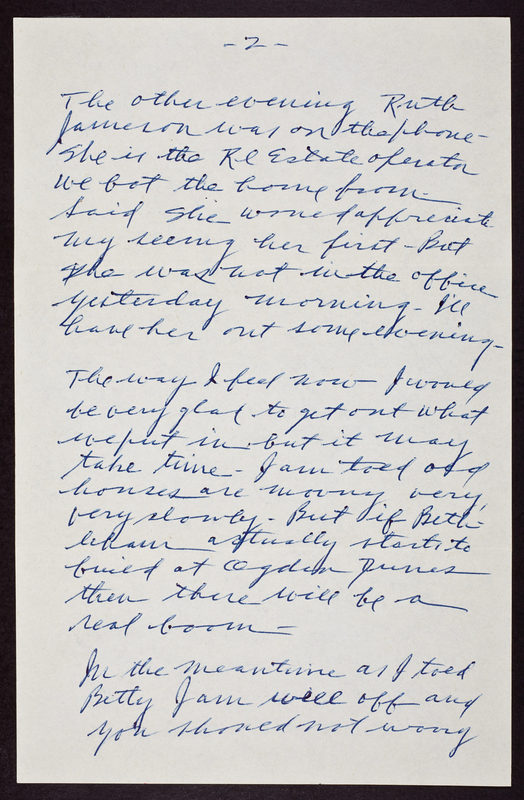 - 2 -
The other evening Ruth
Jameson was on the phone -
She is the Rl Estate operator
we bot the home from -
Said she would appreciate
my seeing her first - But
she was not in the office
yesterday morning - I'll
have her out some evening -
The way I feel now I would
be very glad to get out what
we put in but it may
take time - I am told old
houses are moving very,
very slowly - But if Beth-
leham actually starts to
build at Ogden Dunes
then there will be a
real boom -
In the meantime as I told
Betty I am well off and
you should not worry